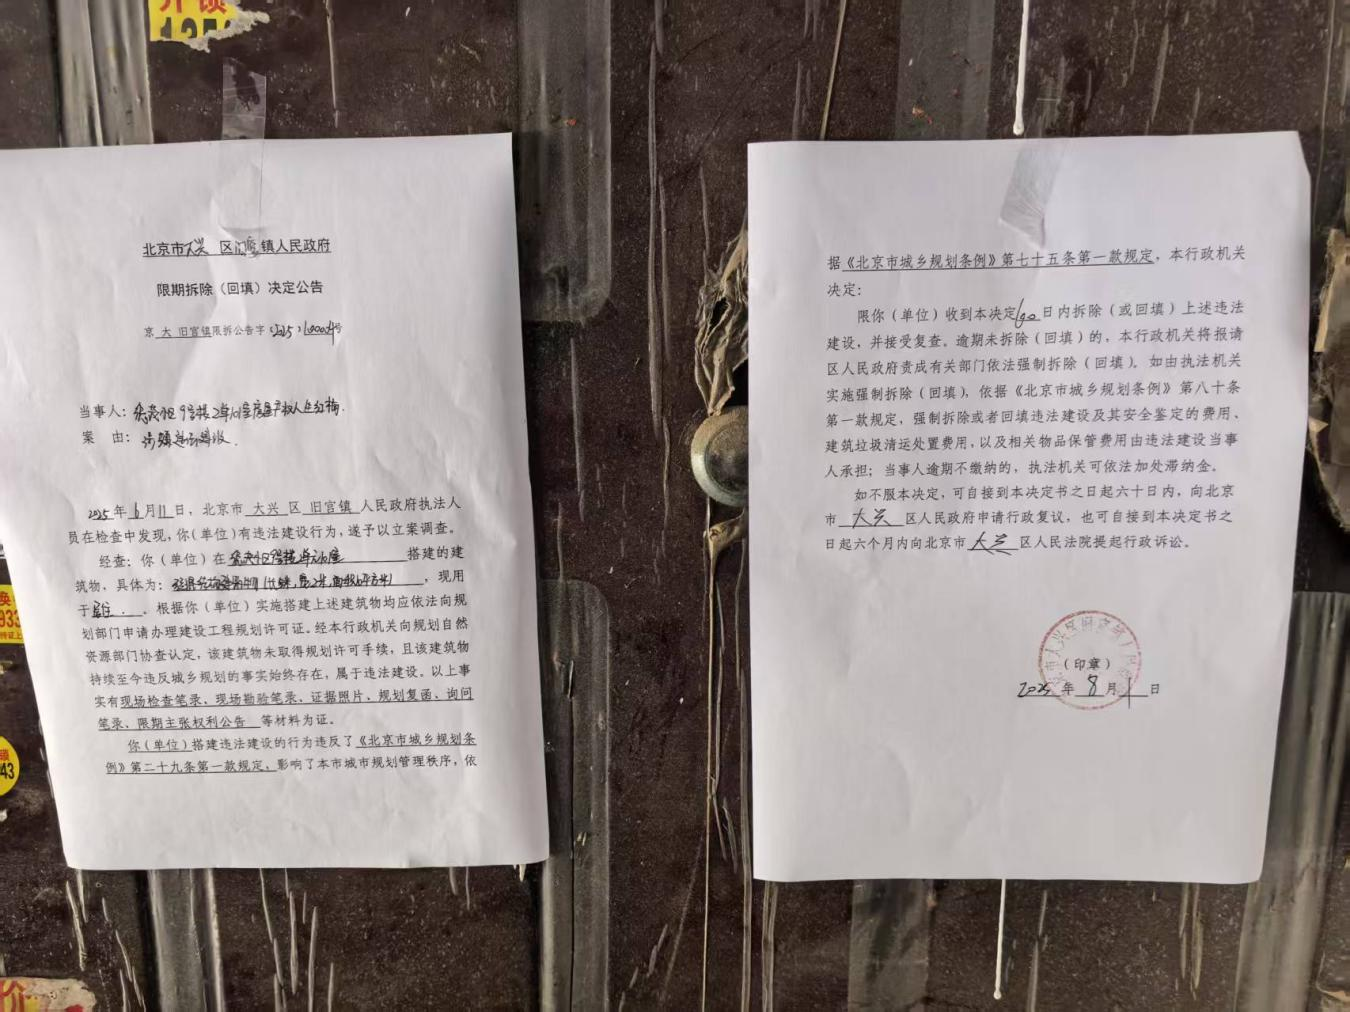 开锁
北京市大兴区旧宫镇人民政府
限期拆除（回填）决定公告
京 大 旧宫镇限拆公告字〔2025〕100004号
当事人：
案 由：
2025年6月11日，北京市 大兴 区 旧宫镇 人民政府执法人
员在检查中发现，你（单位）有违法建设行为，遂予以立案调查。
经查：你（单位）在 搭建的建
筑物，具体为： ，现用
于 。根据你（单位）实施搭建上述建筑物均应依法向规
划部门申请办理建设工程规划许可证。经本行政机关向规划自然
资源部门协查认定，该建筑物未取得规划许可手续，且该建筑物
持续至今违反城乡规划的事实始终存在，属于违法建设。以上事
实有现场检查笔录、现场勘验笔录、证据照片、规划复函、询问
笔录、限期主张权利公告 等材料为证。
你（单位）搭建违法建设的行为违反了《北京市城乡规划条
例》第二十九条第一款规定，影响了本市城市规划管理秩序，依
据《北京市城乡规划条例》第七十五条第一款规定，本行政机关
决定：
限你（单位）收到本决定60日内拆除（或回填）上述违法
建设，并接受复查。逾期未拆除（回填）的，本行政机关将报请
区人民政府责成有关部门依法强制拆除（回填）。如由执法机关
实施强制拆除（回填），依据《北京市城乡规划条例》第八十条
第一款规定，强制拆除或者回填违法建设及其安全鉴定的费用、
建筑垃圾清运处置费用，以及相关物品保管费用由违法建设当事
人承担；当事人逾期不缴纳的，执法机关可依法加处滞纳金。
如不服本决定，可自接到本决定书之日起六十日内，向北京
市 大兴 区人民政府申请行政复议，也可自接到本决定书之
日起六个月内向北京市 大兴 区人民法院提起行政诉讼。
（印章）
2025年8月1日
换
933
锁
43
价